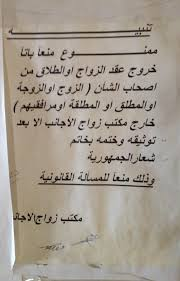 تنبيه
ممنوع منعاً باتاً
خروج عقد الزواج اوالطلاق من
اصحاب الشأن ( الزوج اوالزوجة
اوالمطلق او المطلقة اومرافقيهم )
خارج مكتب زواج الاجانب الا بعد
توثيقه وختمه بخاتم
شعارالجمهورية
وذلك منعاً للمسالة القانونية
مكتب زواج الاجانب